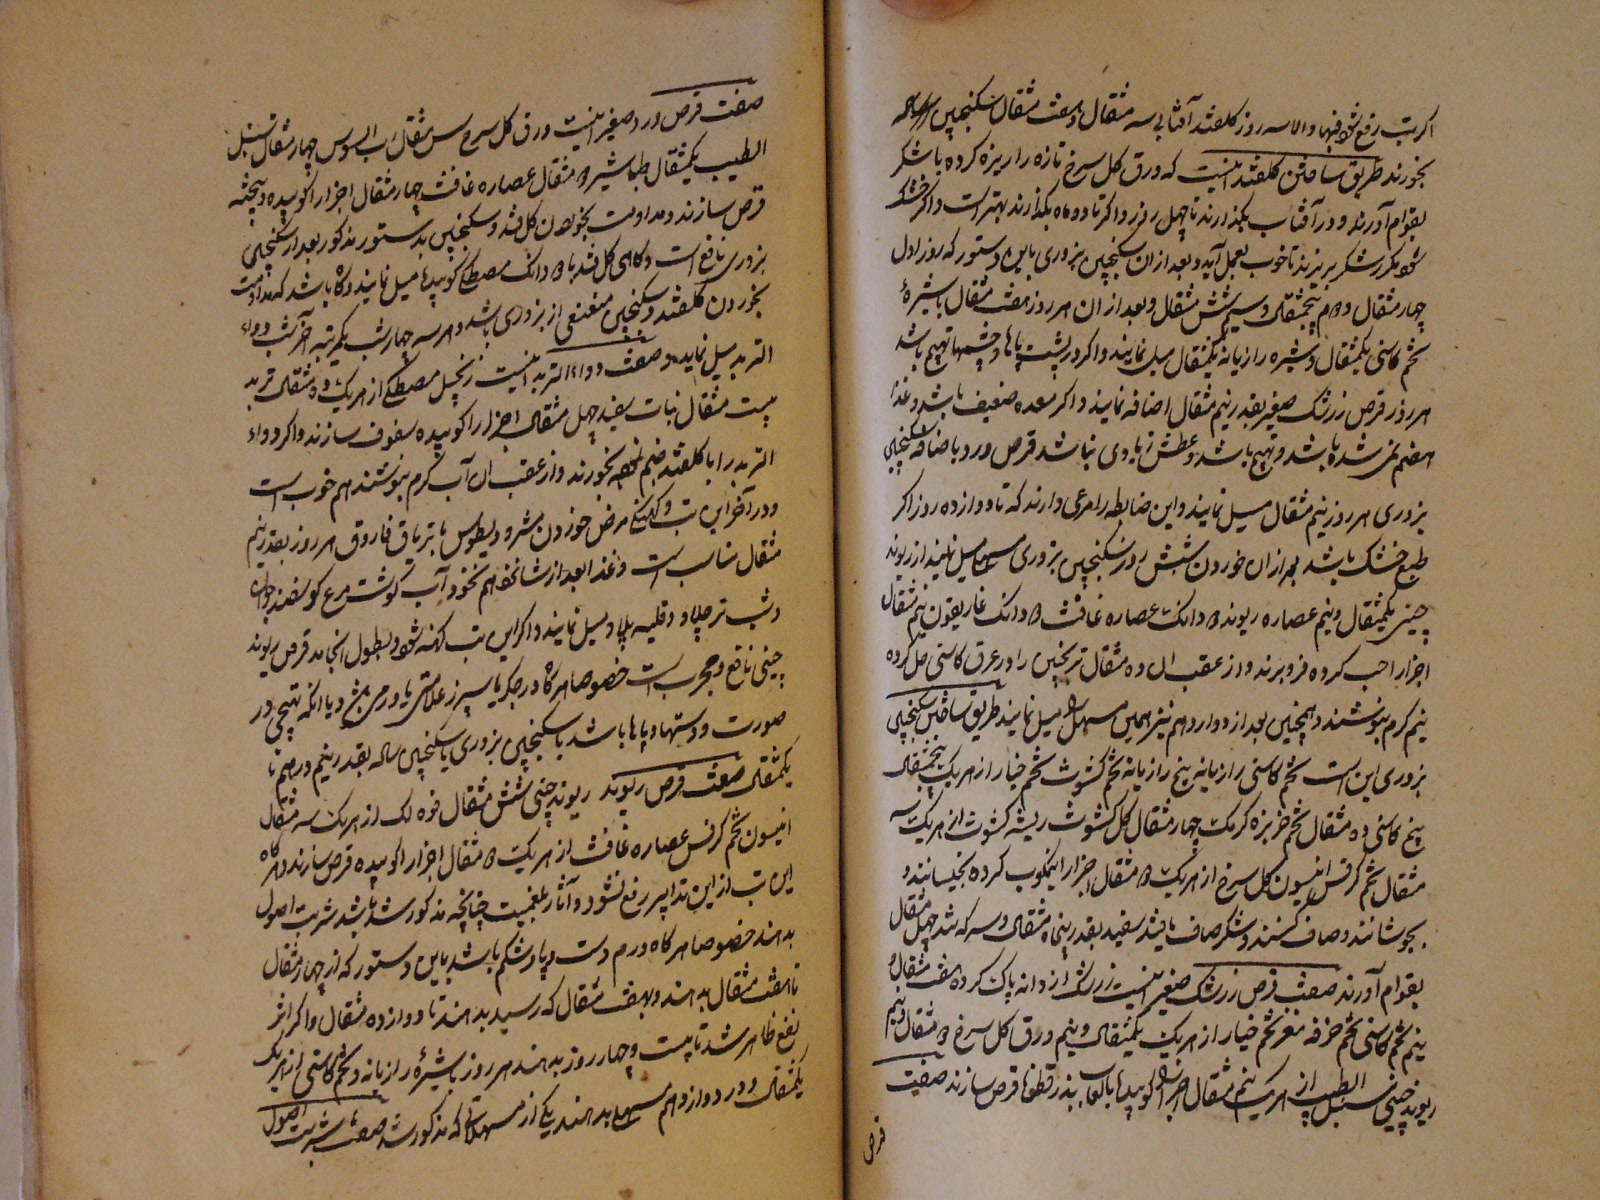 اگر تب رفع شود فبها والا سه روز گلقند آفتابی سه مثقال و هفت مثقال سکنجبین
بخورند طریق ساختن گلقند اینست که ورق گل سرخ تازه را ریزه کرده با شکر
بقوام آورند و در آفتاب بگذارند تا چهل روز و اگر تا دو ماه بگذارند بهتر است و اگر خشک
شود مکرر شکر بریزند تا خوب بعمل آید و بعد از ان سکنجبین بزوری باین دستور که روز اول
چهار مثقال و دوم پنجمثقال و سیم شش مثقال و بعد از ان هر روز هفت مثقال با شیرهٔ
تخم کاسنی یکمثقال و شیره رازیانه یکمثقال میل نمایند و اگر در پشت پاها و چشمها تهبج باشد
هر روز قرص زرشک صغیر بقدر نیم مثقال اضافه نمایند و اگر معده ضعیف باشد و غذا
هضم نمی شده باشد و تهبج باشد و عطش زیادی نباشد قرص ورد باضافه سکنجبین
بزوری هر روز نیم مثقال میل نمایند و این ضابطه را مرعی دارند که تا دوازده روز اگر
طبع خشک باشد بعد از ان خوردن شش روز سکنجبین بزوری مسهل میل نمایند از ریوند
چینی یکمثقال و نیم عصاره ریوند دو دانک عصاره غافث دو دانک غاریقون نیم مثقال
اجزا را حب کرده فرو برند و از عقب ان ده مثقال ترنجبین را در عرق کاسنی حل کرده
نیم گرم بنوشند و همچنین بعد از دوازدهم نیز همین مسهل را میل نمایند طریق ساختن سکنجبین
بزوری این است تخم کاسنی رازیانه بیخ رازیانه تخم کشوث تخم خیار از هریک پنجمثقال
بیخ کاسنی ده مثقال تخم خربزه گرمک چهار مثقال گل کشوث ریشه کشوث از هریک سه
مثقال تخم کرفس انیسون گل سرخ از هریک دو مثقال اجزا را نیمکوب کرده بخیسانند و
بجوشانند و صاف کنند و شکر صاف یا قند سفید بقدر پنجاه مثقال و سرکه تند چهل مثقال
بقوام آورند صفت قرص زرشک صغیر اینست زرشک از دانه پاک کرده هفت مثقال و
نیم تخم کاسنی تخم خرفه مغز تخم خیار از هریک یکمثقال و نیم ورق گل سرخ دو مثقال و نیم
ریوند چینی سنبل الطیب از هریک نیم مثقال اجزا را کوبیده با لعاب بذر قطونا قرص سازند صفت
قرص
صفت قرص ورد صغیر اینست ورق گل سرخ شش مثقال رب السوس چهار مثقال سنبل
الطیب یکمثقال طباشیر دو مثقال عصاره غافث چهار مثقال اجزا را کوبیده و بیخته
قرص سازند و مداومت بخوردن گل قند و سکنجبین بدستور مذکور بعد از سکنجبین
بزوری نافع است و گاهی گل قند با دو دانک مصطکی کوبیده میل نمایند و گاه باشد که مداومت
بخوردن گلقند و سکنجبین مغنی از بزوری باشد و هر سه چهار شب یکمرتبه آخر شب دواء
التربد میل نمایند و صفت دواء التربد اینست زنجبیل مصطکی از هریک ده مثقال تربد
بیست مثقال نبات سفید چهل مثقال اجزا را کوبیده سفوف سازند و اگر دواء
التربد را با گلقند ضم نموده بخورند و از عقب ان آب گرم بنوشند هم خوب است
و در آخر این تب و کهنگی مرض خوردن مثرودیطوس یا تریاق فاروق هر روز بقدر نیم
مثقال مناسب است و غذا بعد از شانزدهم نخود آب گوشت مرغ گوسفند جوان
و شب تر چلاو و قلیه پلاو میل نمایند و اگر این تب کهنه شود و بطول انجامد قرص ریوند
چینی نافع و مجرب است خصوصا هرگاه در جگر یا سپرز علامتی یا ورمی باشد و یا انکه تهبجی در
صورت و دستها و پاها باشد با سکنجبین بزوری یا سکنجبین ساده بقدر نیم درهم تا
یکمثقال صفت قرص ریوند ریوند چینی شش مثقال فوه لک از هریک سه مثقال
انیسون تخم کرفس عصاره غافث از هریک دو مثقال اجزا را کوبیده قرص سازند و هرگاه
این تب از این تدابیر رفع نشود و آثار بلغمیت چنانچه مذکور شد باشد شربت اصول
بدهند خصوصا هرگاه ورم دست و پا و شکم باشد باین دستور که از چهار مثقال
تا هفت مثقال بدهند و بهفت مثقال که رسید بدهند تا دوازده مثقال و اگر اثر
نفع ظاهر شد تا بیست و چهار روز بدهند هر روز با شیرهٔ رازیانه و تخم کاسنی از هریک
یکمثقال و در دوازدهم مسهل بدهند یکی از مسهلاتی که مذکور شد صفت شربت اصول